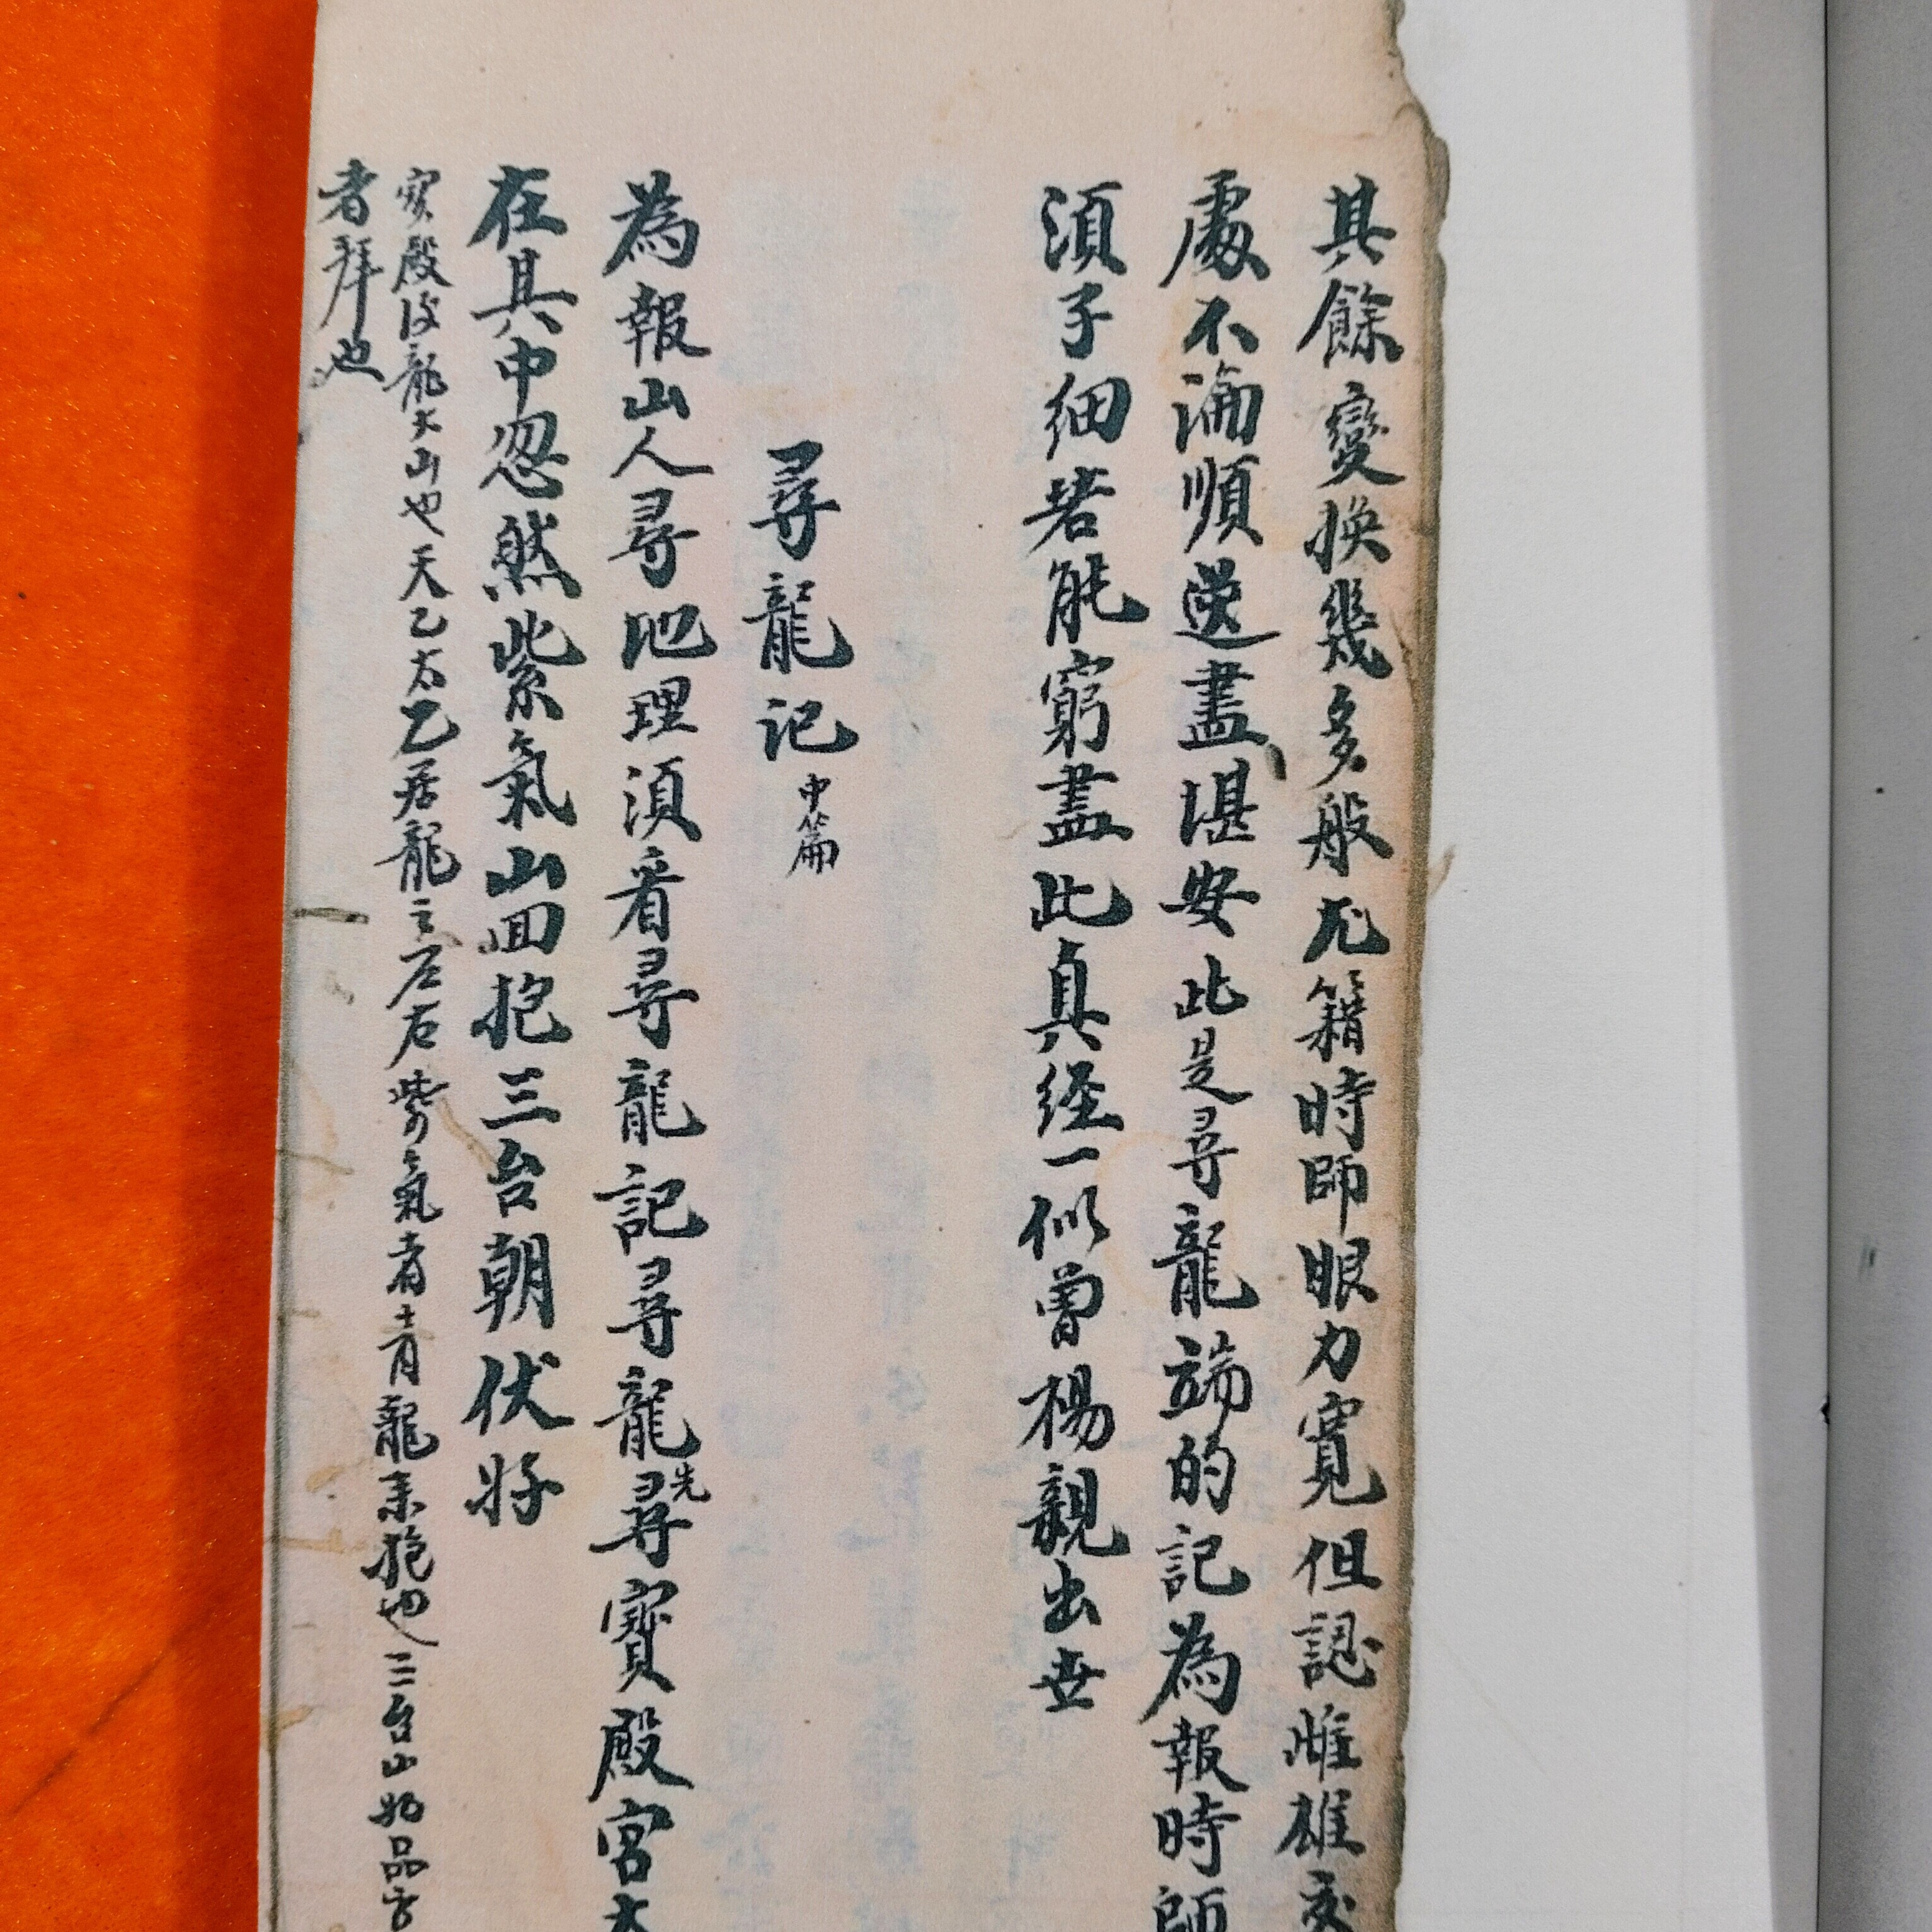 其餘變换幾多般尤籍時師眼力寬但認雌雄交
處不淪順逆盡堪安此是尋龍端的記為報時師
須子细若能窮盡此真経一似曾楊親出世
尋龍记中篇
為報山人尋地理須看尋龍記尋龍先尋寶殿宮太
在其中忽然紫氣山回抱三台朝伏好
寳殿後龍大山也天乙太乙居龍之左右紫氣者青龍来抱也三台山如品字
者拜也